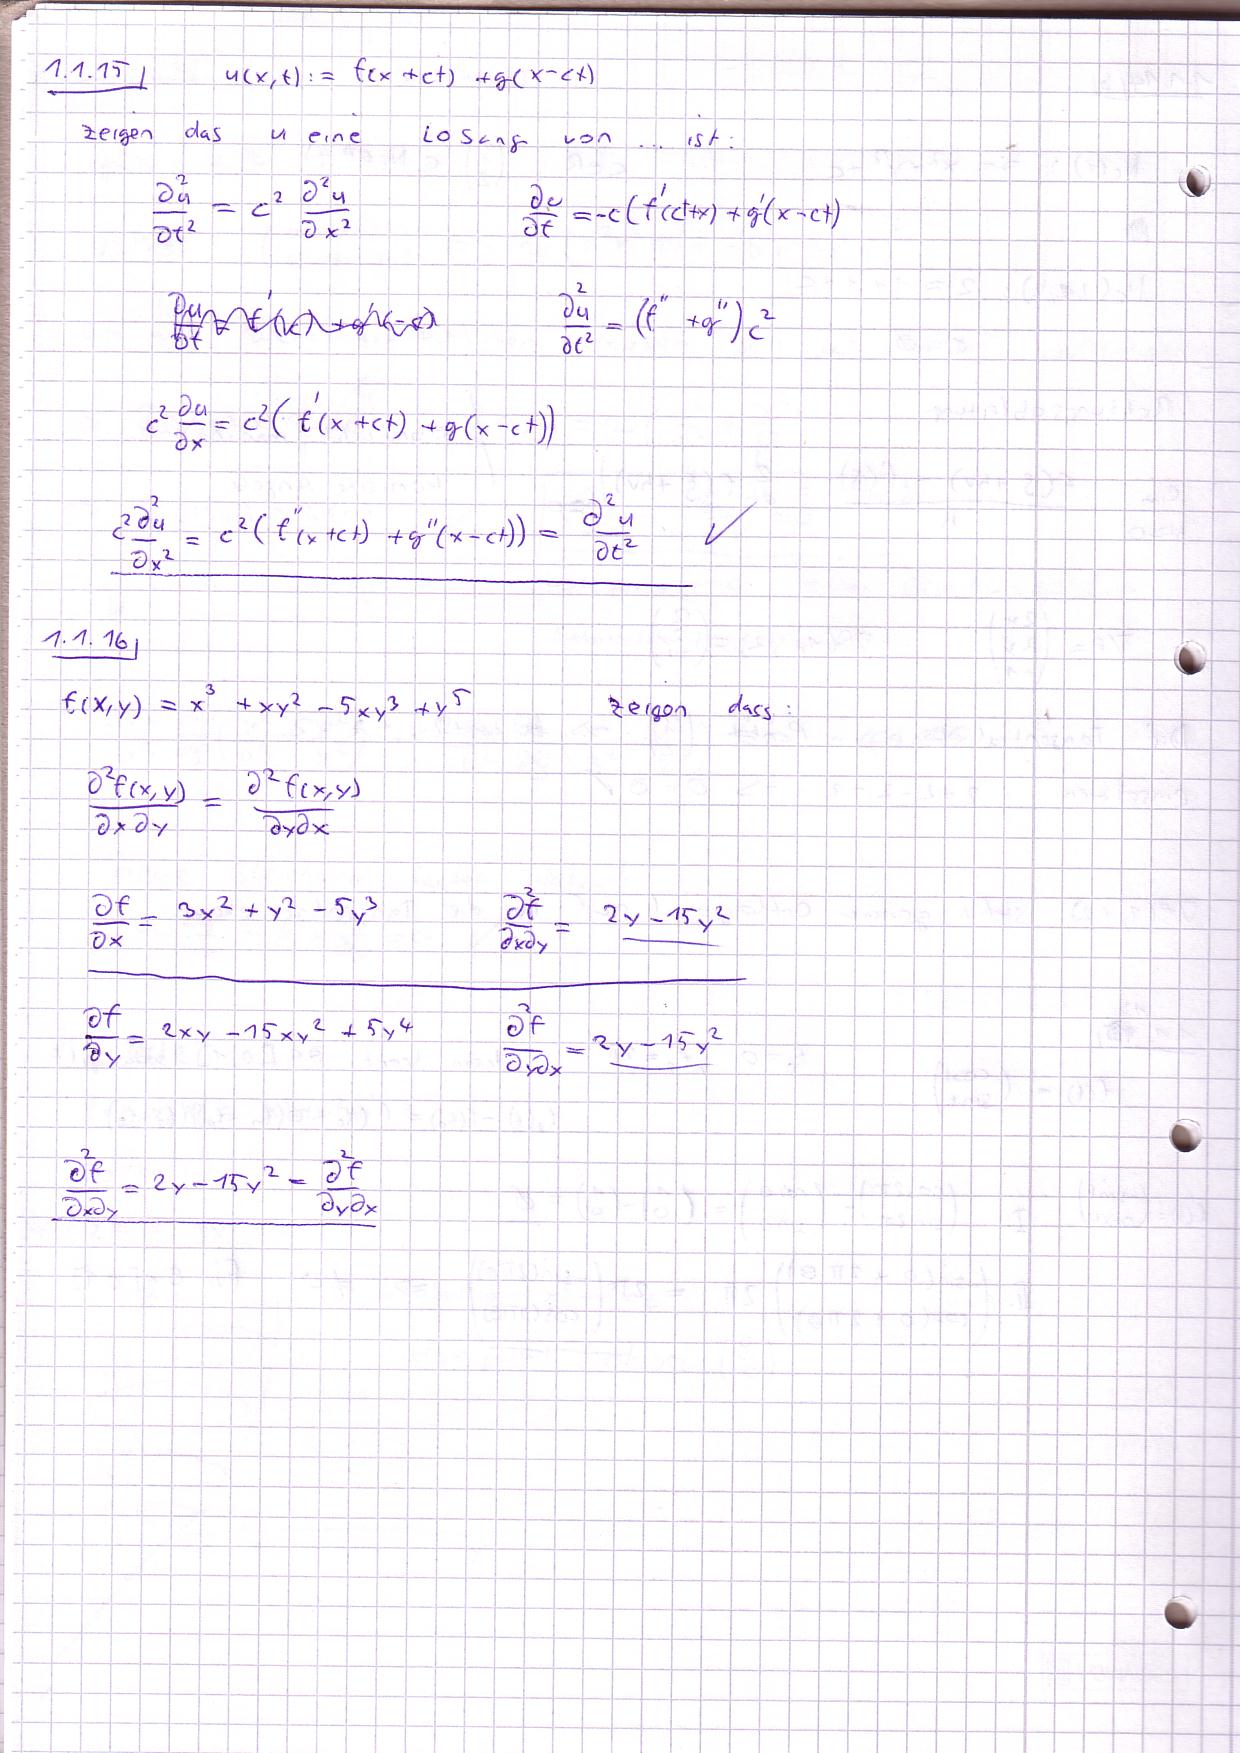 1.1.15
u(x,t) := f(x+ct) + g(x-ct)
zeigen das u eine Lösung von ... ist:
∂²u/∂t² = c² ∂²u/∂x²    ∂u/∂t = -c(f'(ct+x) + g'(x-ct)
∂²u/∂t² = (f'' + g'')c²
c² ∂u/∂x = c²(f'(x+ct) + g(x-ct))
c² ∂²u/∂x² = c²(f''(x+ct) + g''(x-ct)) = ∂²u/∂t² ✓
1.1.16
f(x,y) = x³ + xy² - 5xy³ + y⁵    zeigen dass:
∂²f(x,y)/∂x∂y = ∂²f(x,y)/∂y∂x
∂f/∂x = 3x² + y² - 5y³    ∂²f/∂x∂y = 2y - 15y²
∂f/∂y = 2xy - 15xy² + 5y⁴    ∂²f/∂y∂x = 2y - 15y²
∂²f/∂x∂y = 2y - 15y² = ∂²f/∂y∂x